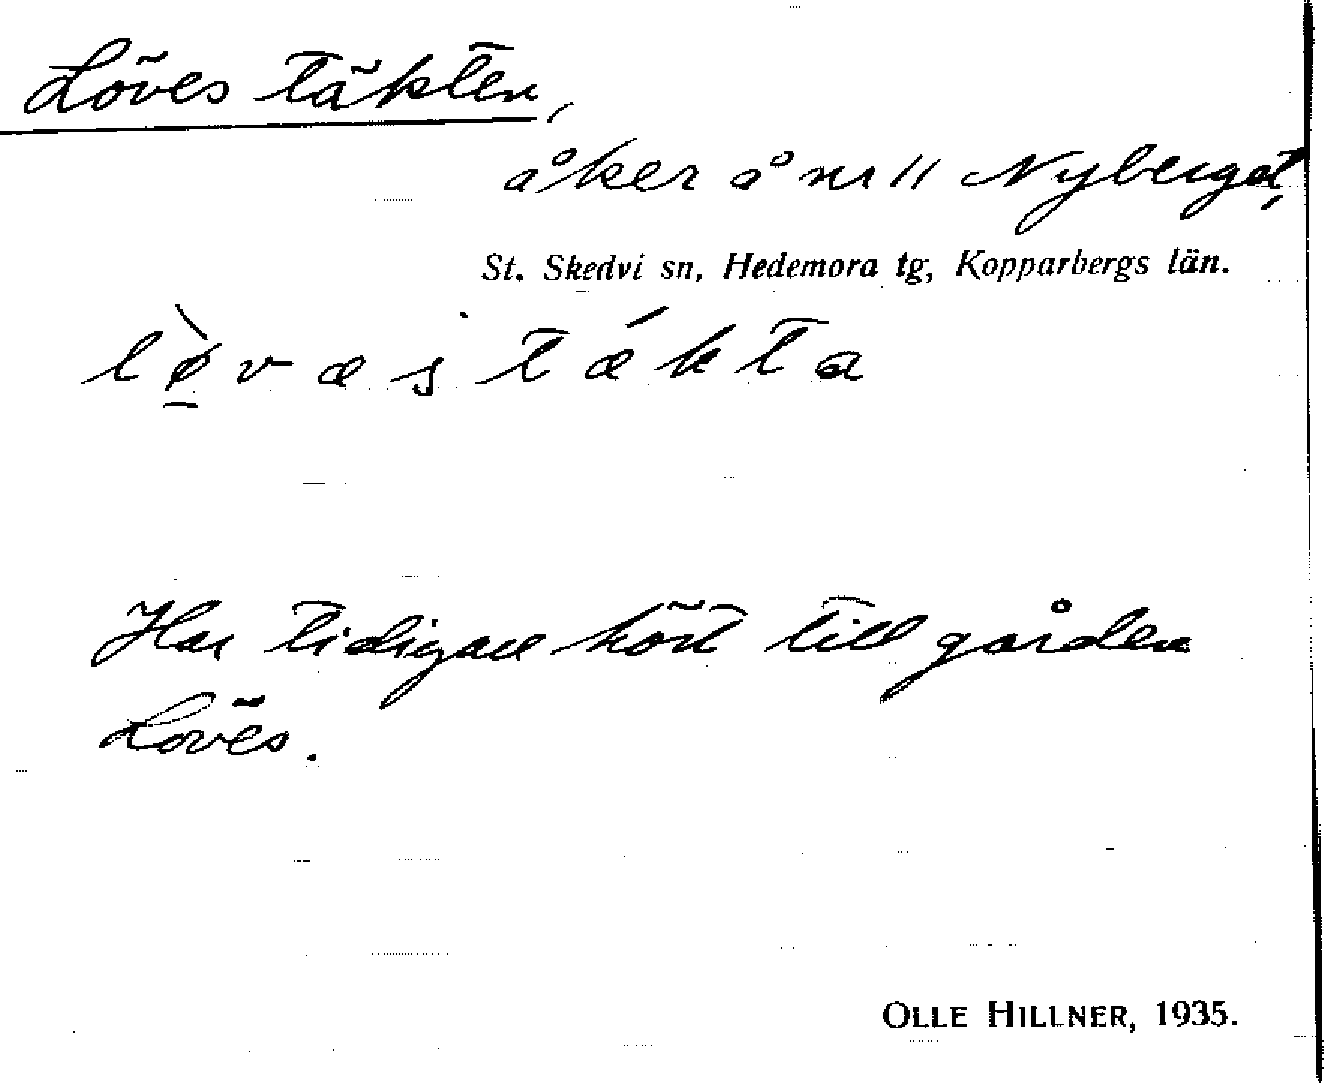 Löves täkten,
åker å nr 11 Nyberget,
St. Skedvi sn, Hedemora tg, Kopparbergs län.
lø̠̀væs tǽkta
Har tidigare hört till gården
Löves.
OLLE HILLNER, 1935.